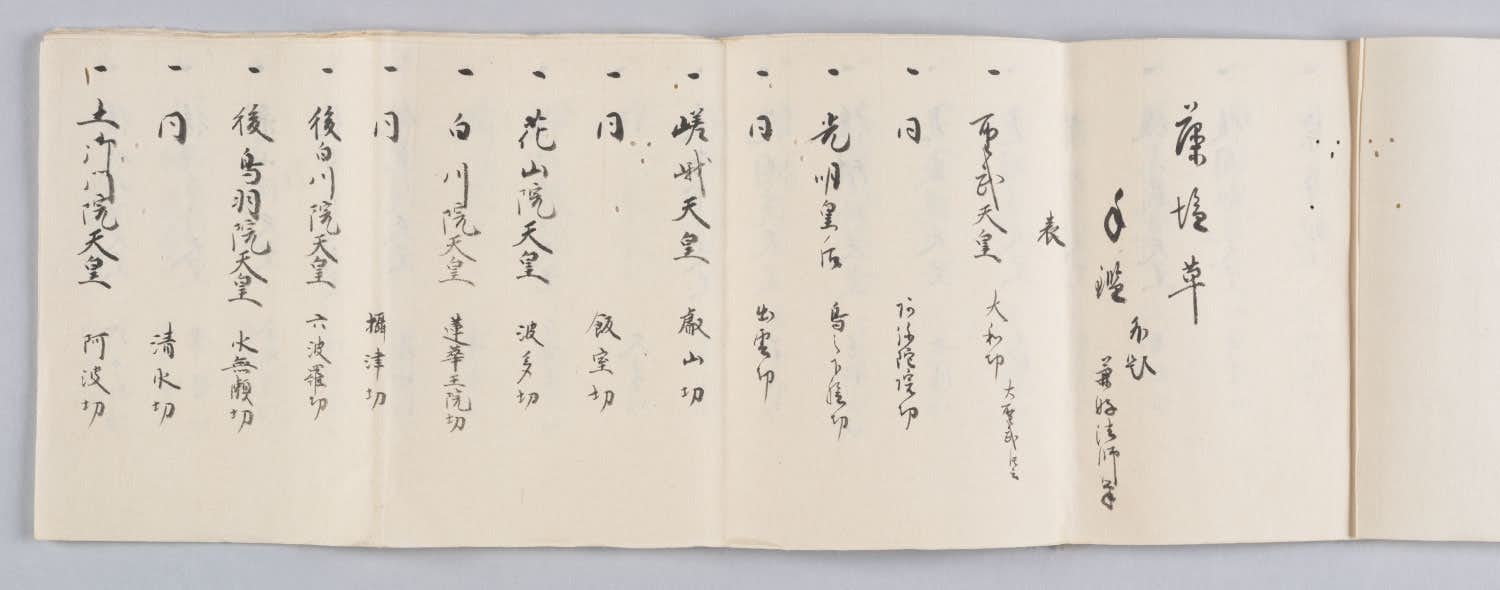 藻塩草
手鑑 外題 兼好法師筆
表
一 聖武天皇 大和切 大聖武ト云
一 同 阿弥陀院切
一 光明皇后 鳥之下絵切
一 同 出雲切
一 嵯峨天皇 叡山切
一 同 飯室切
一 花山院天皇 波多切
一 白川院天皇 蓮華王院切
一 同 攝津切
一 後白川院天皇 六波羅切
一 後鳥羽院天皇 水無瀬切
一 同 清水切
一 土御門院天皇 阿波切